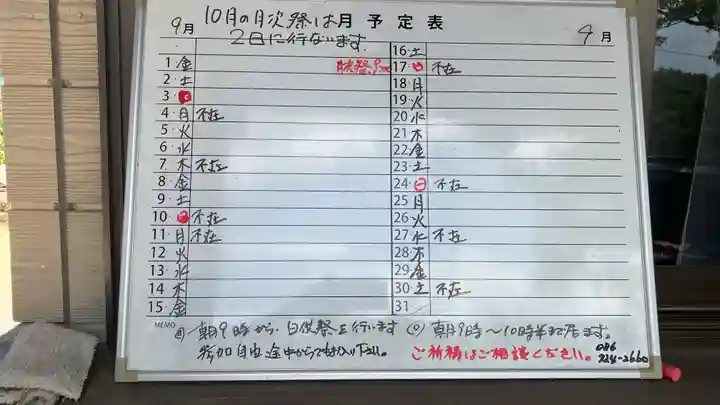 10月の月次祭は月予定表
9月
2日に行ないます。
9月
1 金
2 土
3 日
4 月 不在
5 火
6 水
7 木 不在
8 金
9 土
10 日 不在
11 月 不在
12 火
13 水
14 木
15 金
16 土
17 日 不在
18 月
19 火
20 水
21 木
22 金
23 土
24 日 不在
25 月
26 火
27 水 不在
28 木
29 金
30 土 不在
31
MEMO 朝9時から、日供祭を行います
朝9時〜10時半まで居ます。
参加自由、途中からでもお入り下さい。
ご祈祷はご相談ください。
086
724-2660